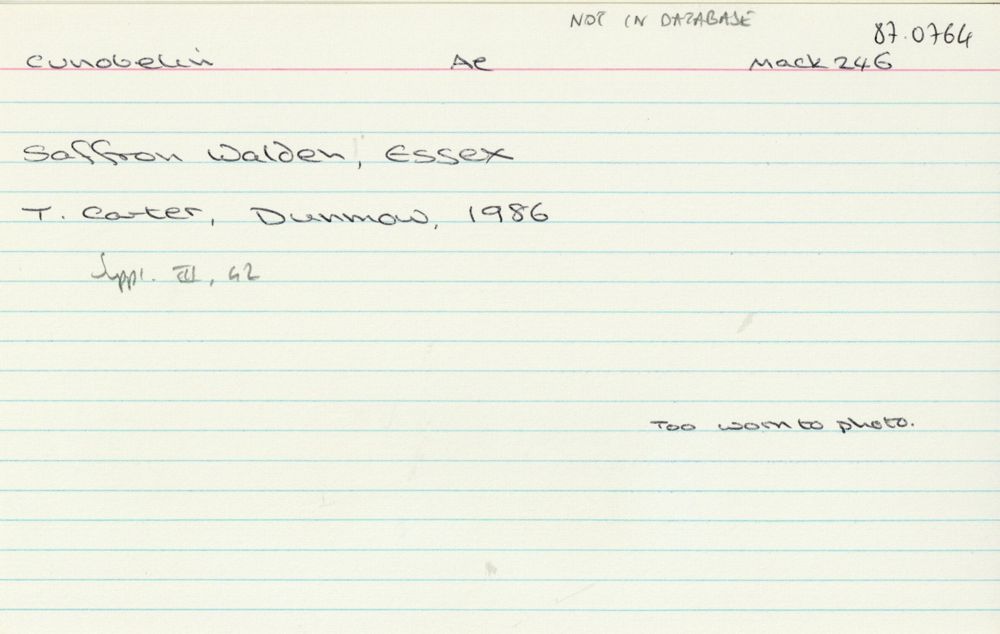 NOT IN DATABASE
87.0764
Cunobelin Ae Mack 246
Saffron Walden, Essex
T. Carter, Dunmow, 1986
Suppl. III, 42
Too worn to photo.